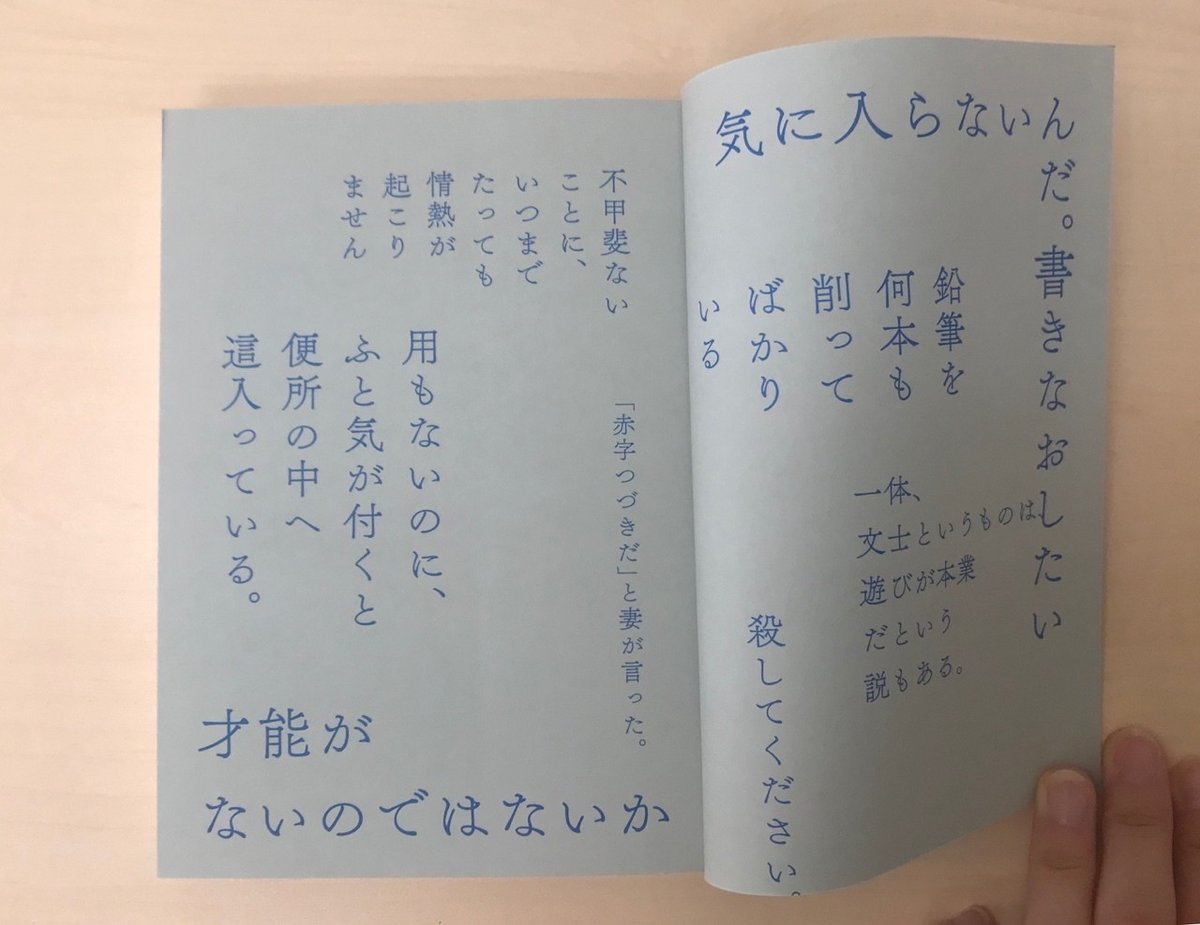 気に入らないんだ。書きなおしたい
鉛筆を
何本も
削って
ばかり
いる
一体、
文士というものは
遊びが本業
だという
説もある。
殺してください。
不甲斐ない
ことに、
いつまで
たっても
情熱が
起こり
ません
「赤字つづきだ」と妻が言った。
用もないのに、
ふと気が付くと
便所の中へ
這入っている。
才能が
ないのではないか